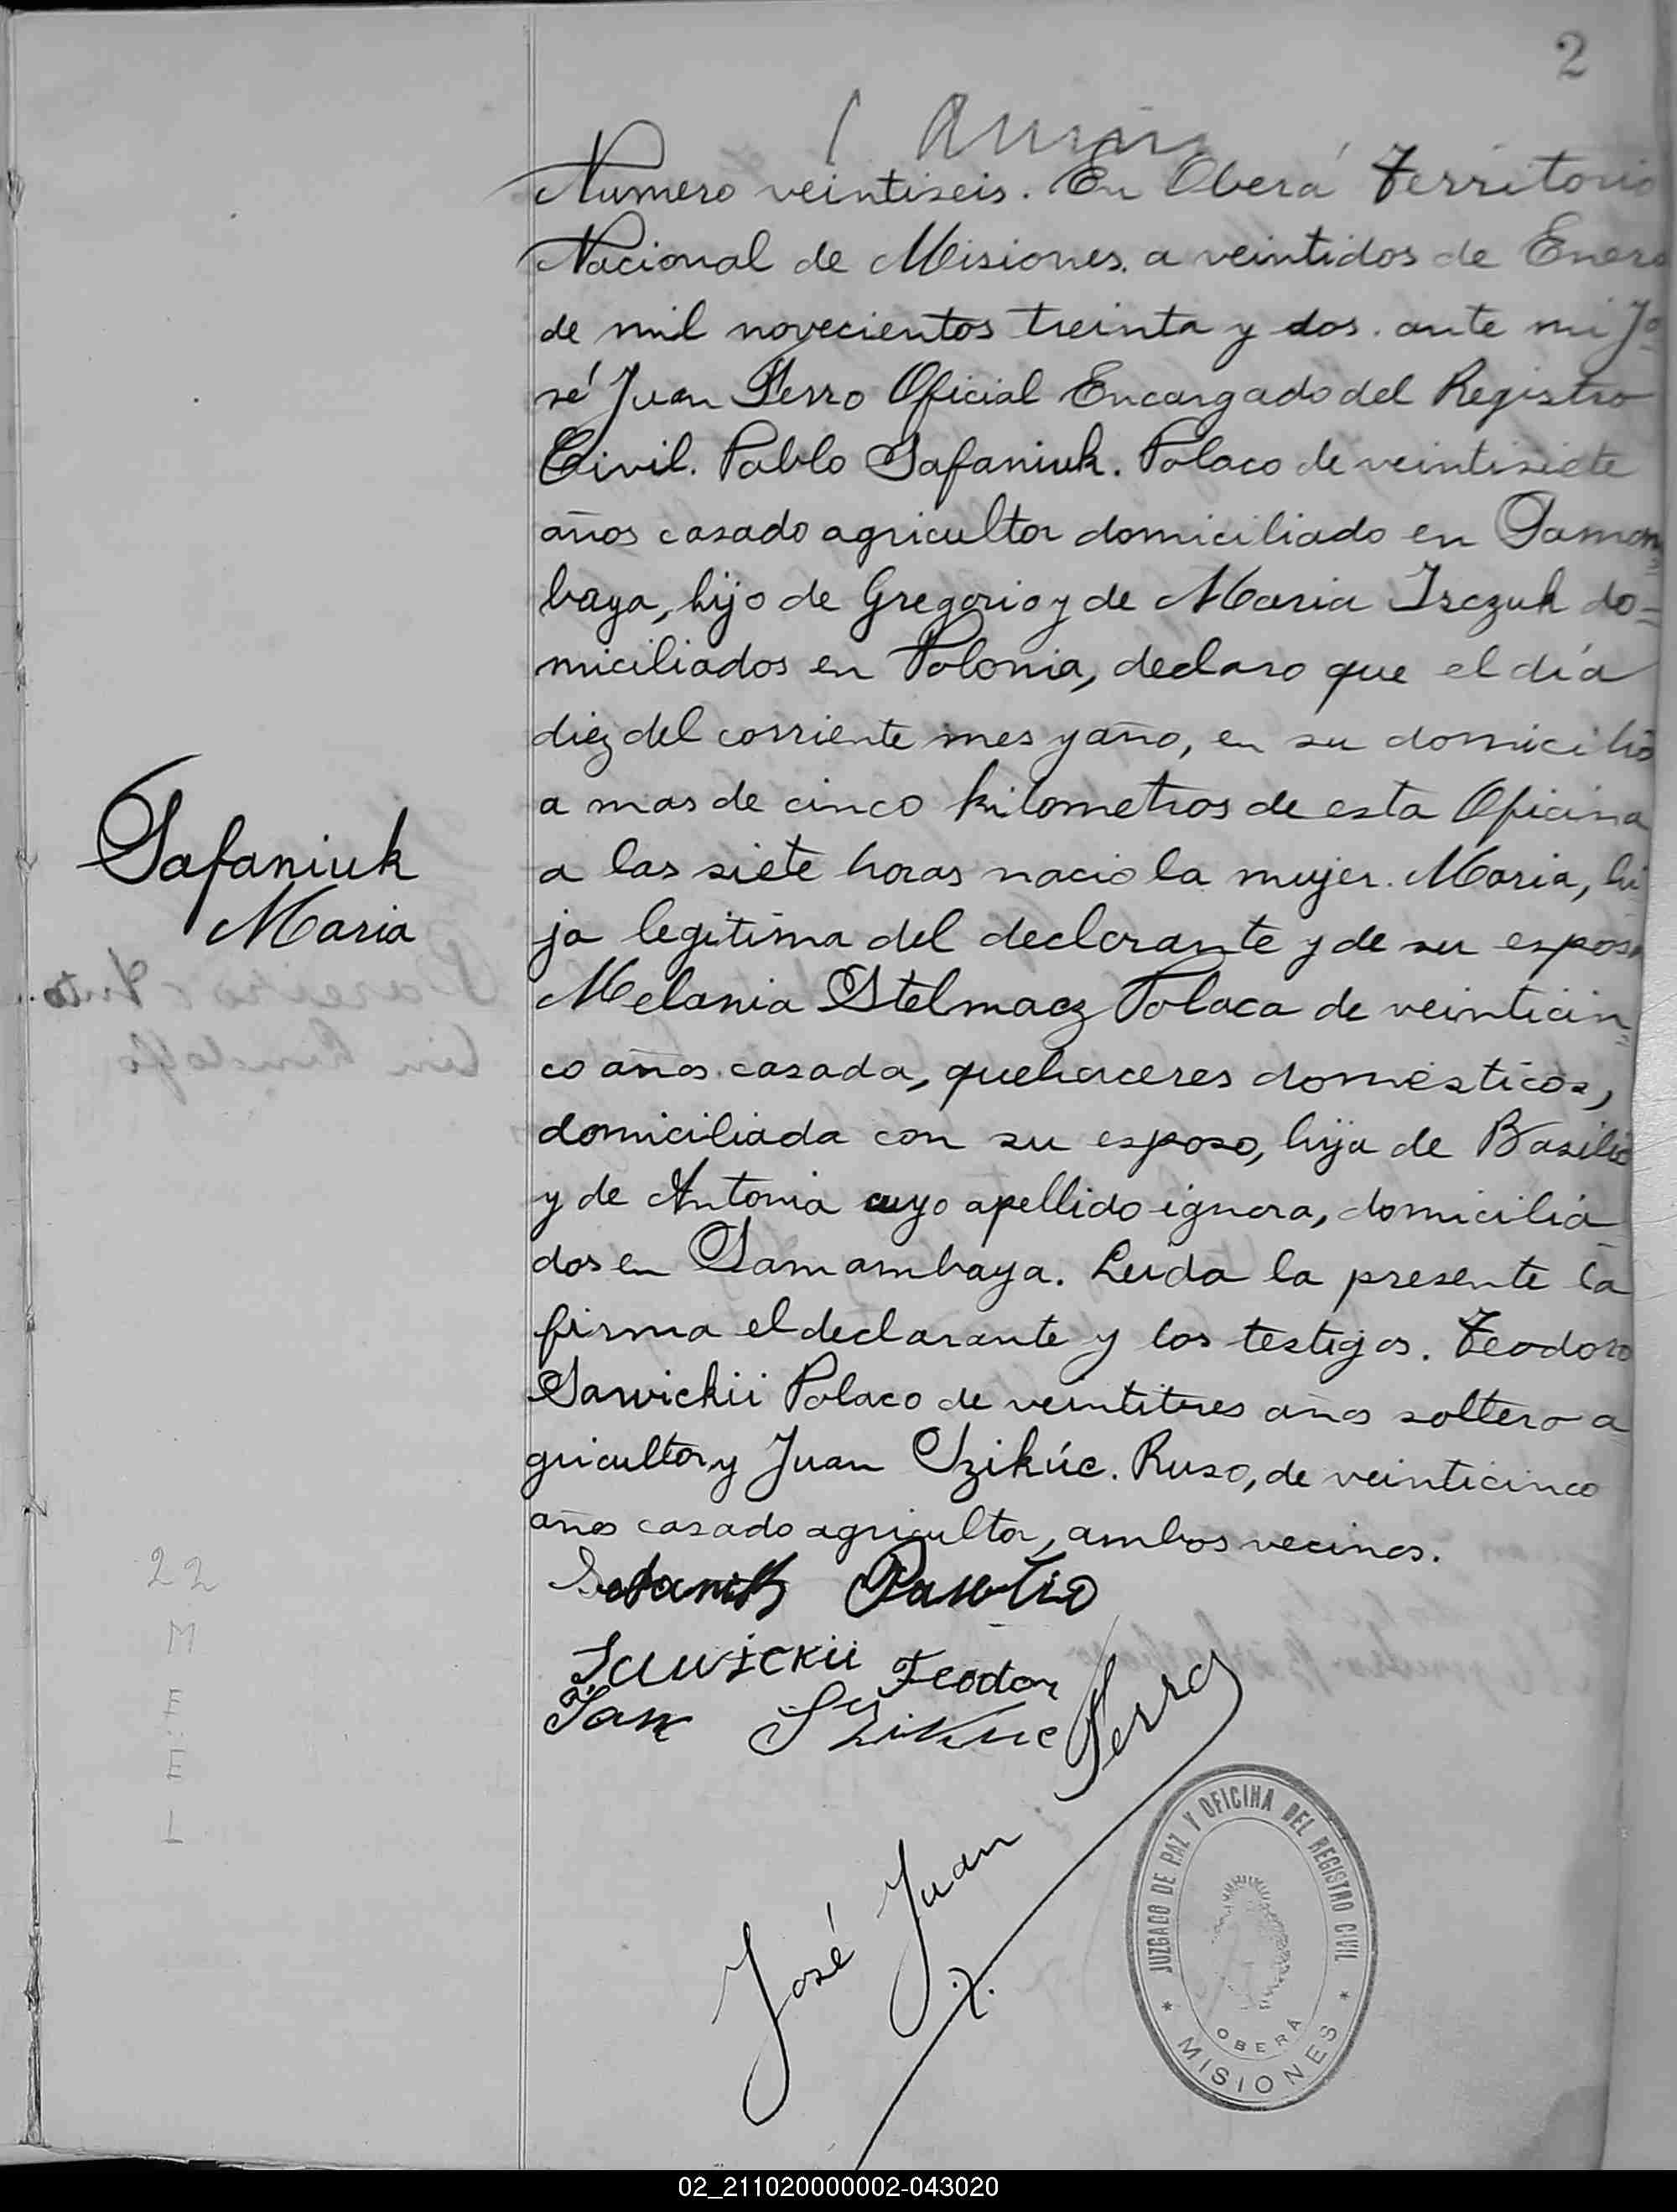 2
Numero veintiseis. En Oberá Territorio
Nacional de Misiones. a veintidos de Enero
de mil novecientos treinta y dos. ante mi Jo
sé Juan Ferro Oficial Encargado del Registro
Civil. Pablo Safaniuk. Polaco de veintisiete
años casado agricultor domiciliado en Samam
baya, hijo de Gregorio y de Maria Isczuk do=
miciliados en Polonia, declaro que el día
diez del corriente mes y año, en su domicilio
a mas de cinco kilometros de esta Oficina
a las siete horas nacio la mujer. Maria, hi
Safaniuk
Maria
ja legitima del declarante y de su esposa
Melania Stelmacz Polaca de veinticin
co años casada, quehaceres domésticos,
domiciliada con su esposo, hija de Basilio
y de Antonia cuyo apellido ignora, domicilia
dos en Samambaya. Leida la presente la
firma el declarante y los testigos. Teodoro
Sawickii Polaco de veintitres años soltero a
gricultor y Juan Szikúc. Ruso, de veinticinco
años casado agricultor, ambos vecinos.
Sawickii Feodor
Jan Szikuc
José Juan Ferro
22
M
E
E
L
JUZGADO DE PAZ Y OFICINA DEL REGISTRO CIVIL
OBERÁ
* MISIONES *
02_211020000002-043020